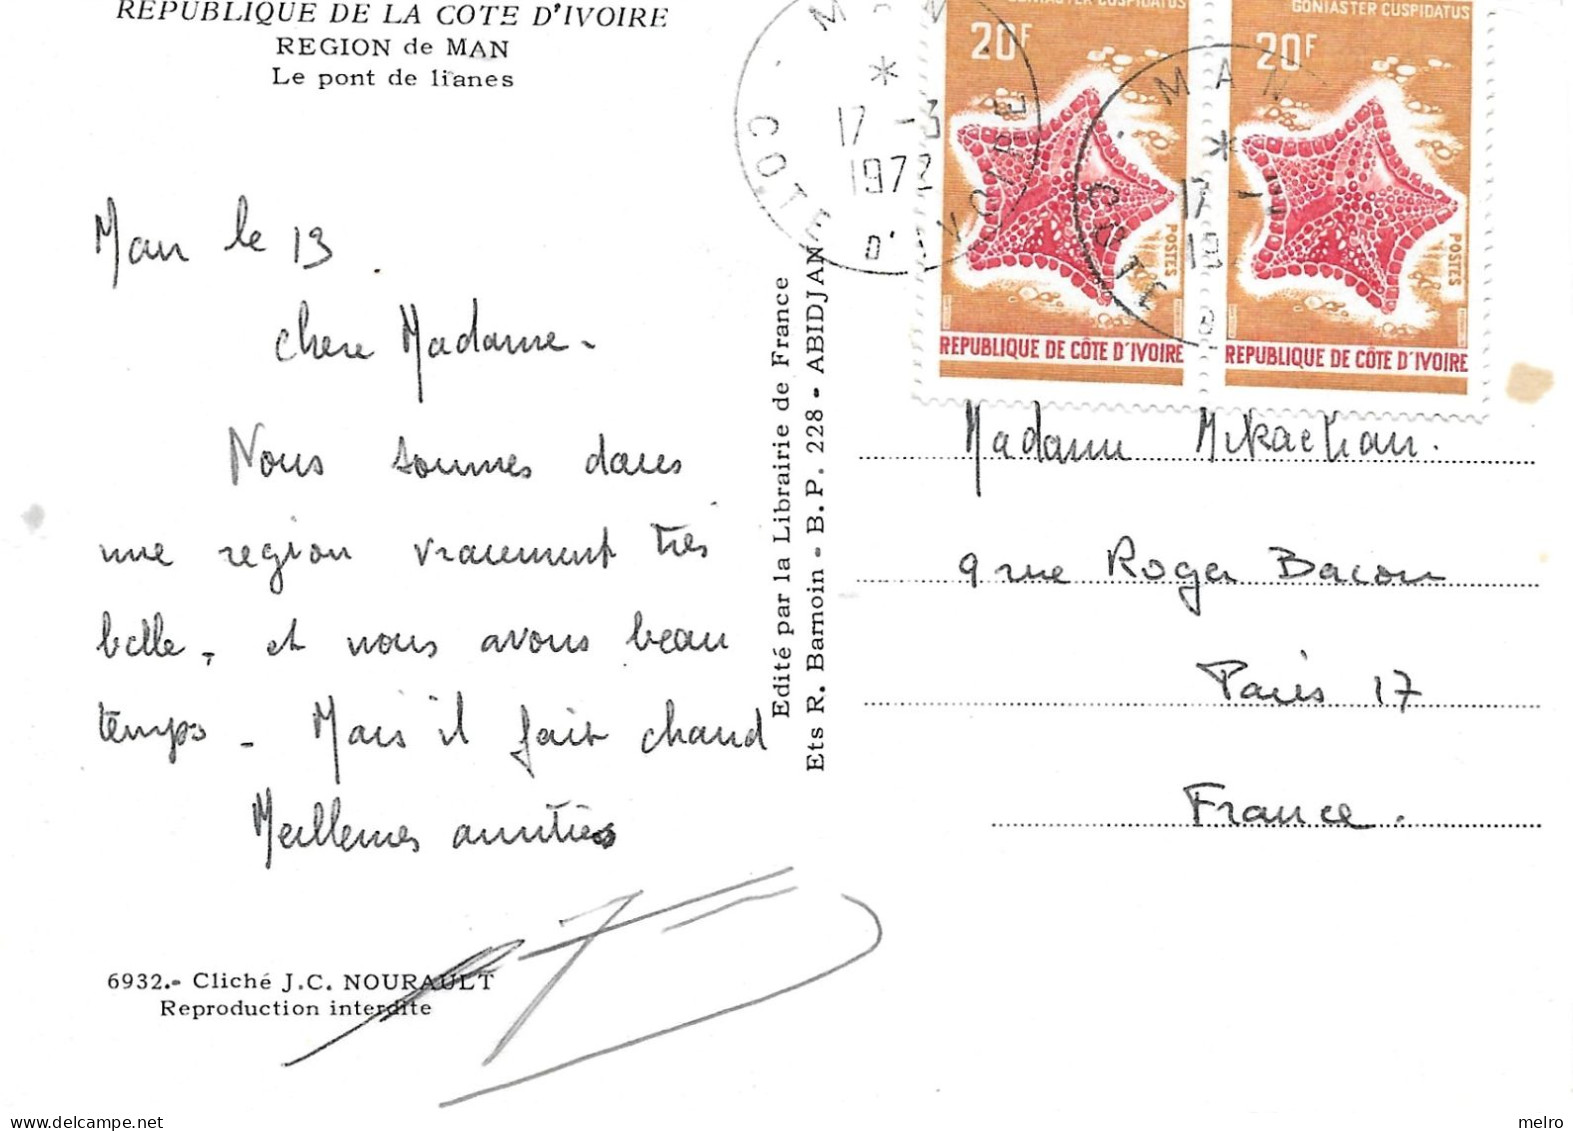 REPUBLIQUE DE LA COTE D'IVOIRE
REGION de MAN
Le pont de lianes
Man le 13.
chere Madame -
Nous sommes dans
une region vraiement très
belle - et nous avons beau
temps - Mais il fait chaud
Meilleures amitiés
6932.- Cliché J.C. NOURAULT
Reproduction interdite
Edité par la Librairie de France
Ets R. Barnoin - B.P. 228 - ABIDJAN
GONIASTER CUSPIDATUS
20F
POSTES
REPUBLIQUE DE CÔTE D'IVOIRE
GONIASTER CUSPIDATUS
20F
POSTES
REPUBLIQUE DE CÔTE D'IVOIRE
MAN
*
17 -3
1972
COTE D'IVOIRE
MAN
*
17 -
19
COTE D
Madame Mikaelian.
9 rue Roger Bacon
Paris 17
France.
Delcampe.net
melro